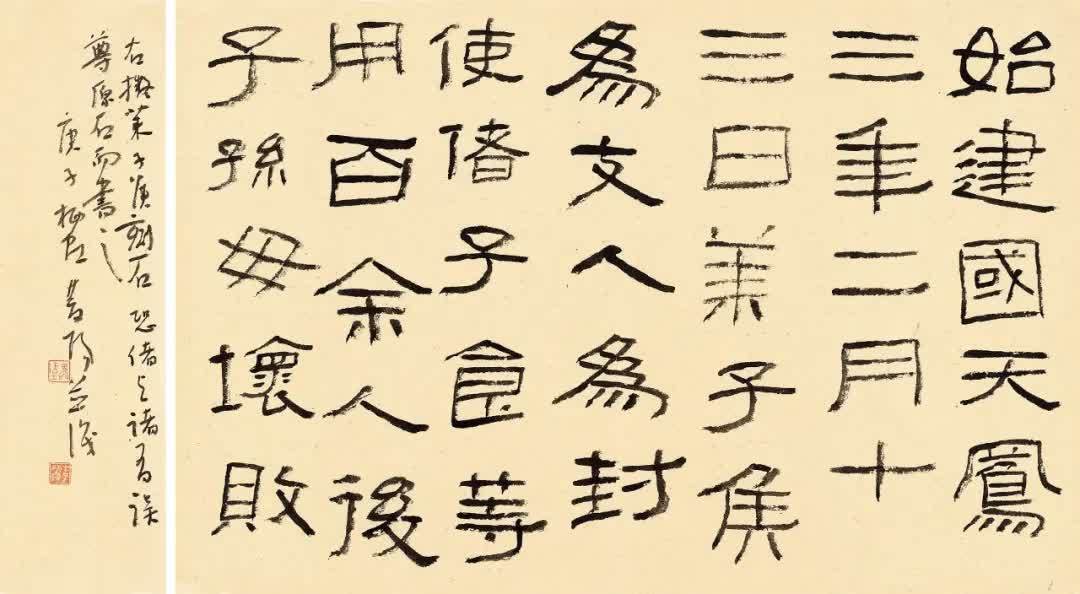 始建國天鳳
三年二月十
三日萊子侯
為支人為封
使偖子食等
用百余人後
子孫毋壞敗
右橅萊子侯刻石恐偖与諸有誤
尊原石而書之
庚子